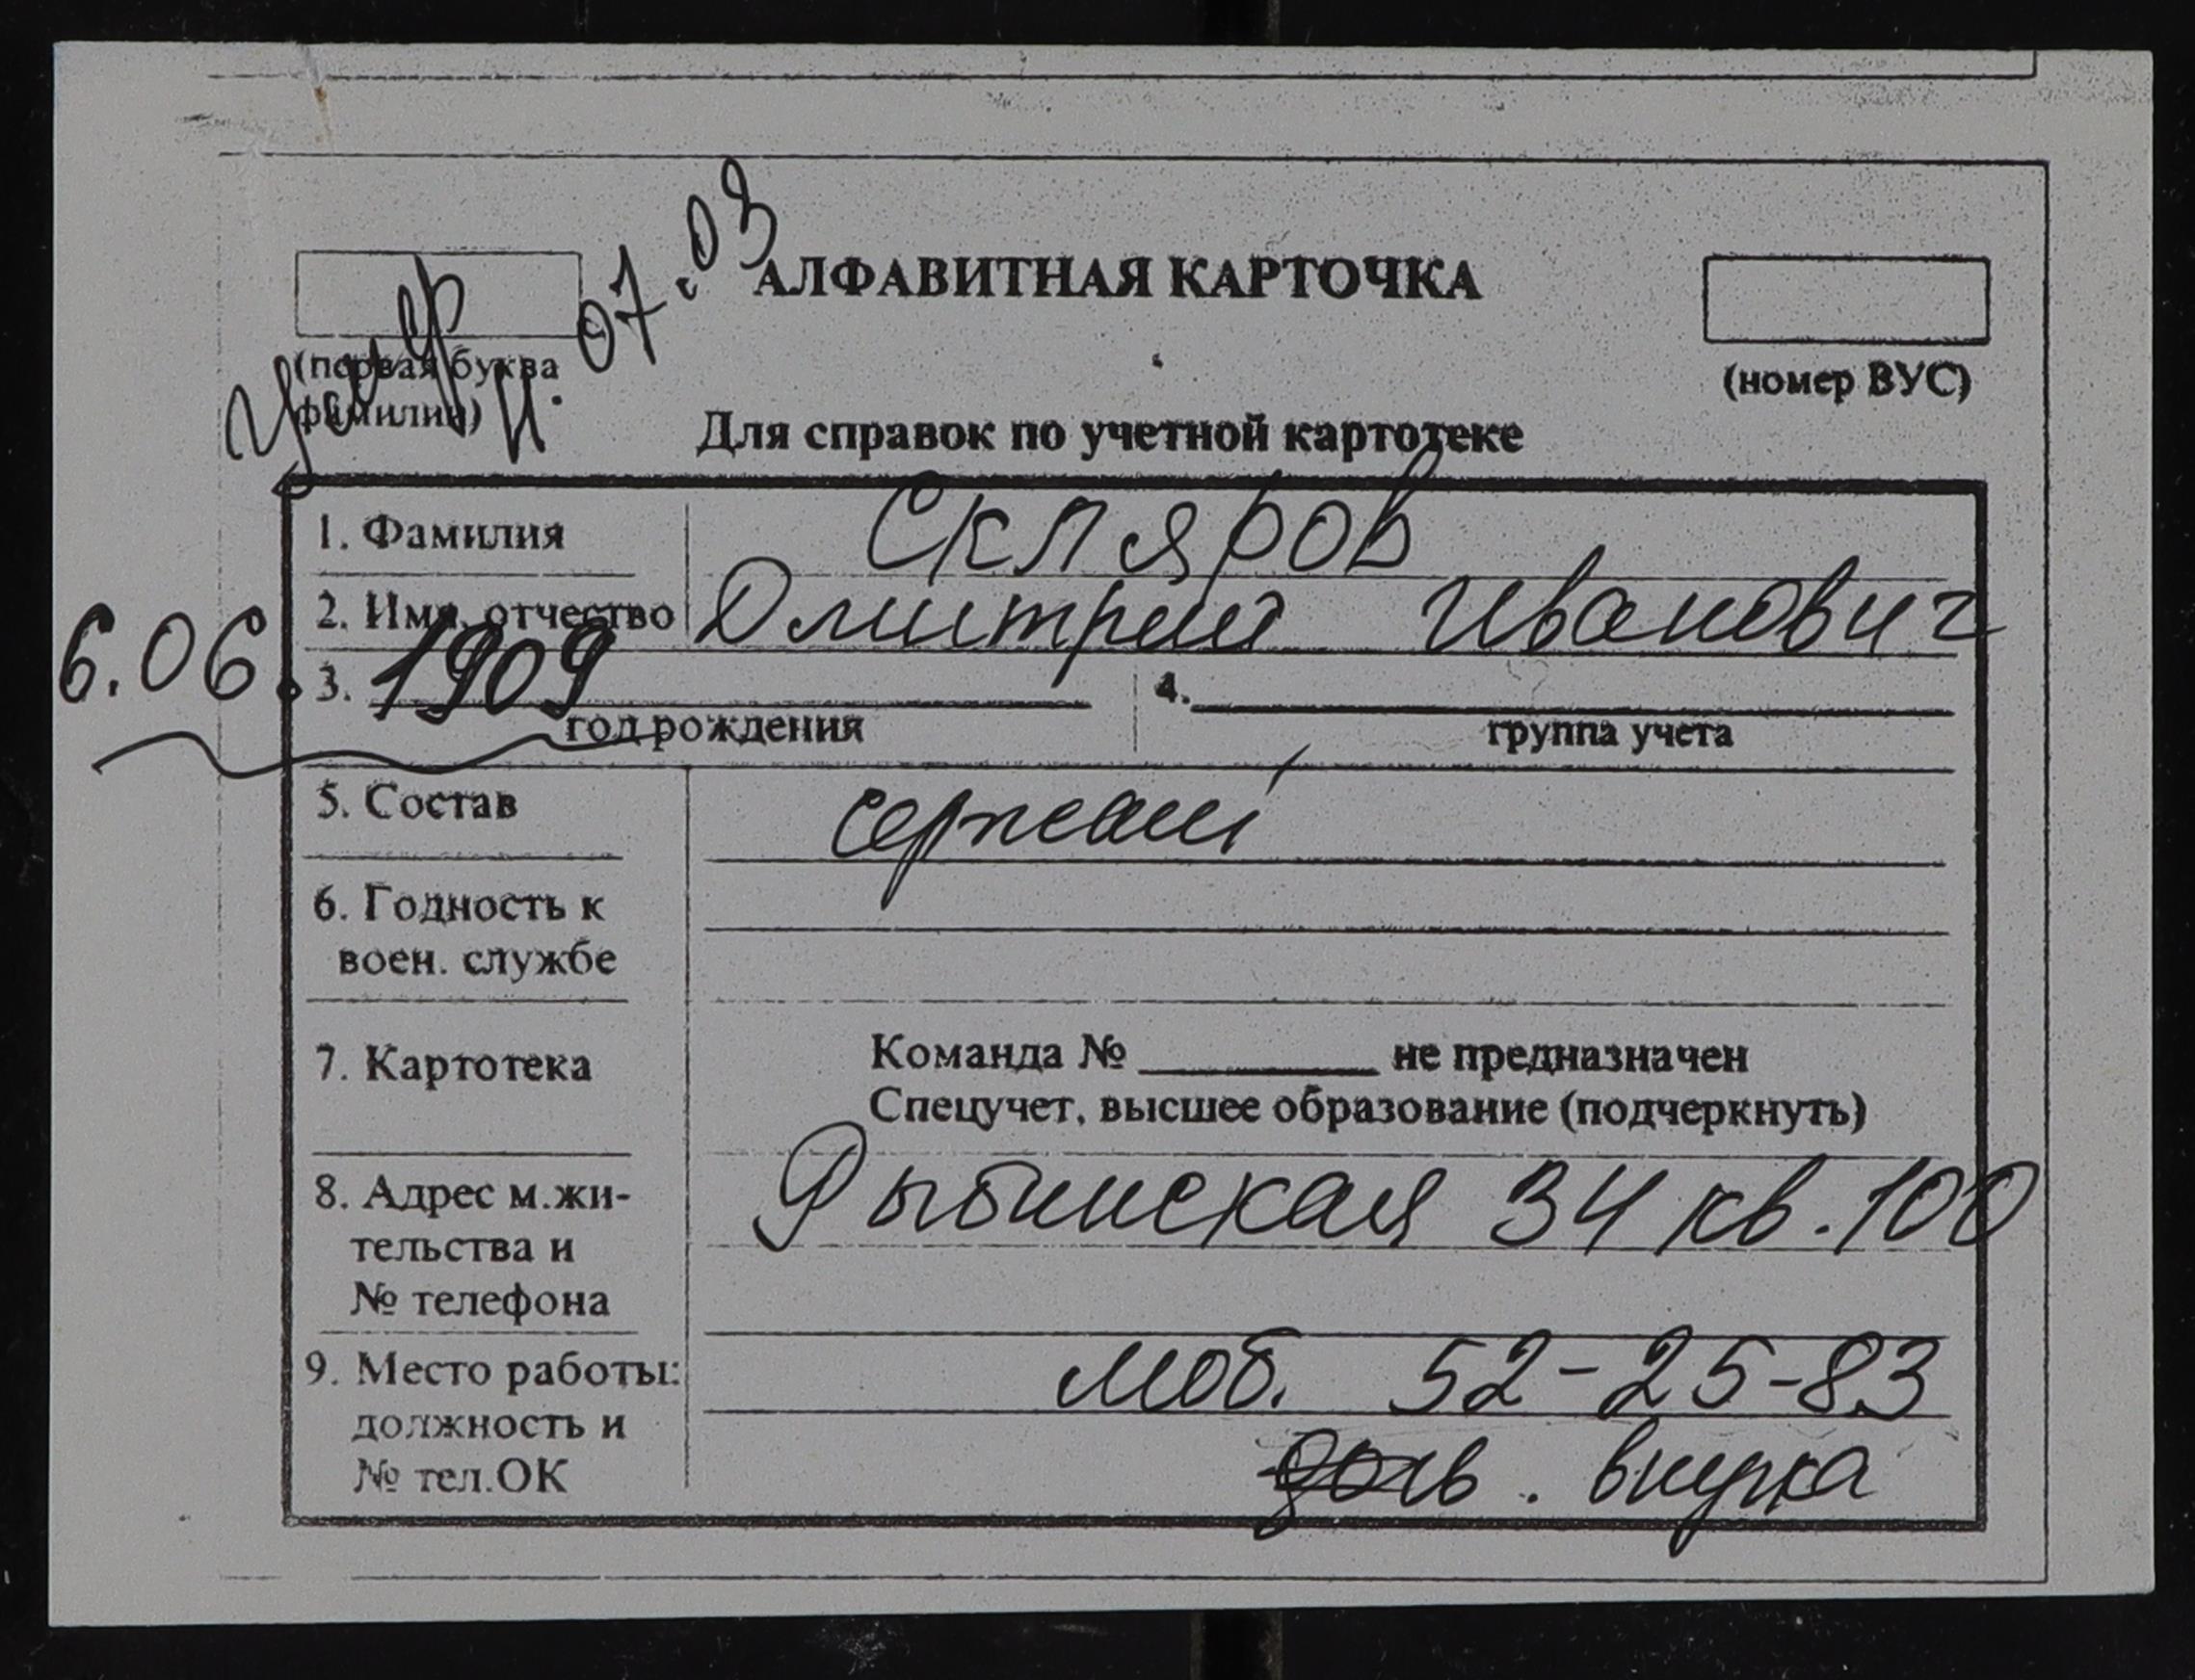 Умер 11.07.03
АЛФАВИТНАЯ КАРТОЧКА
(первая буква
фамилии)
(номер ВУС)
Для справок по учетной картотеке
1. Фамилия Скляров
2. Имя, отчество Дмитрий Иванович
6.06. 3. 1909 4.
год рождения группа учета
5. Состав сержант
6. Годность к
воен. службе
7. Картотека Команда № ________ не предназначен
Спецучет, высшее образование (подчеркнуть)
8. Адрес м.жи- Рыбинская 34 кв. 100
тельства и
№ телефона
9. Место работы: моб. 52-25-83
должность и
№ тел.ОК дочь. внука